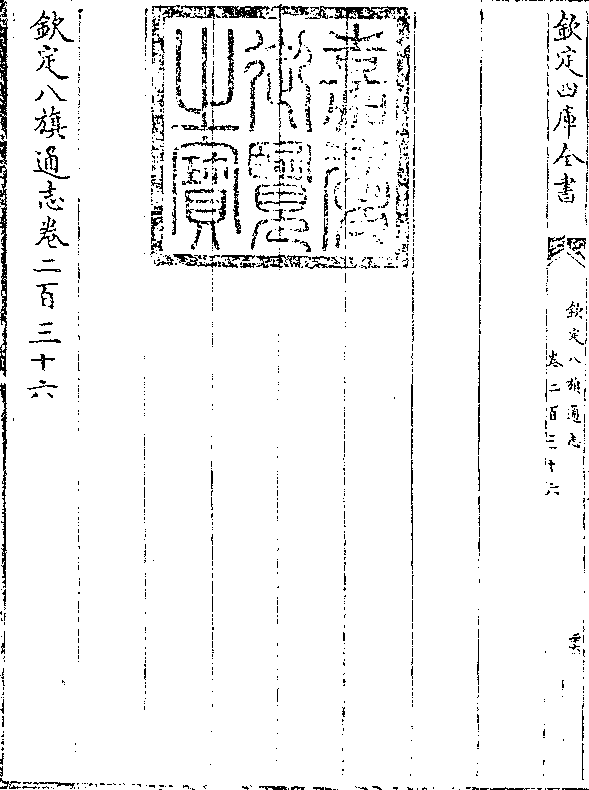 欽定四庫全書
欽定八旗通志
卷二百三十六
乾隆
御覽
之寶
欽定八旗通志卷二百三十六